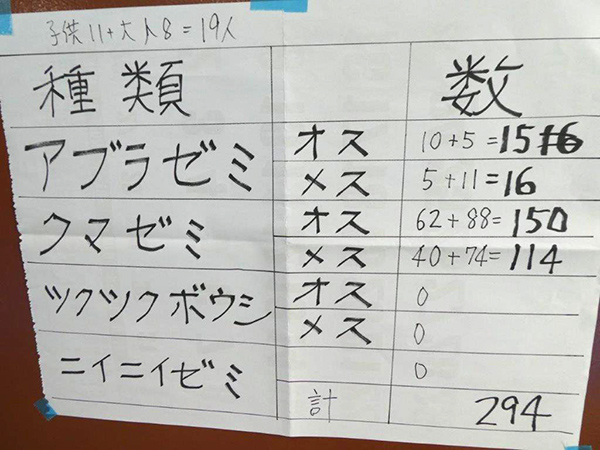 子供11+大人8=19人
種類 数
アブラゼミ オス 10+5=15
メス 5+11=16
クマゼミ オス 62+88=150
メス 40+74=114
ツクツクボウシ オス 0
メス 0
ニイニイゼミ 0
計 294